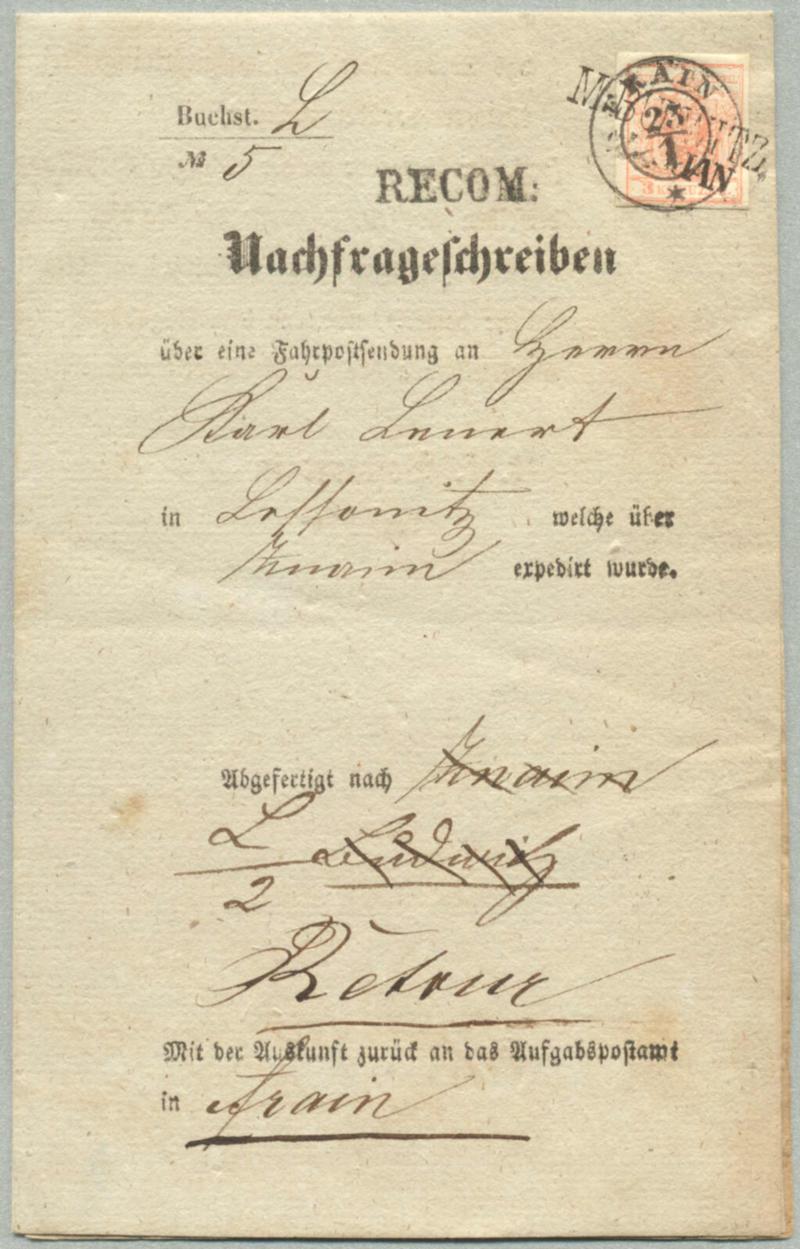 Buchst. L
№ 5
FRAIN
25
1
JAN
RECOM:
Nachfrageschreiben
über eine Fahrpostsendung an Herrn
Karl Lenert
in Lessonitz welche über
Znaim expedirt wurde.
Abgefertigt nach Znaim
L
2
Retour
Mit der Auskunft zurück an das Aufgabspostamt
in Frain